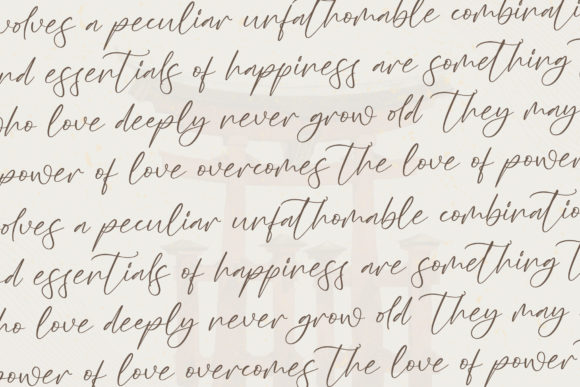 volves a peculiar unfathomable combinati
nd essentials of happiness are something
who love deeply never grow old They may
power of love overcomes the love of power
olves a peculiar unfathomable combinatio
d essentials of happiness are something t
ho love deeply never grow old They may
power of love overcomes the love of power